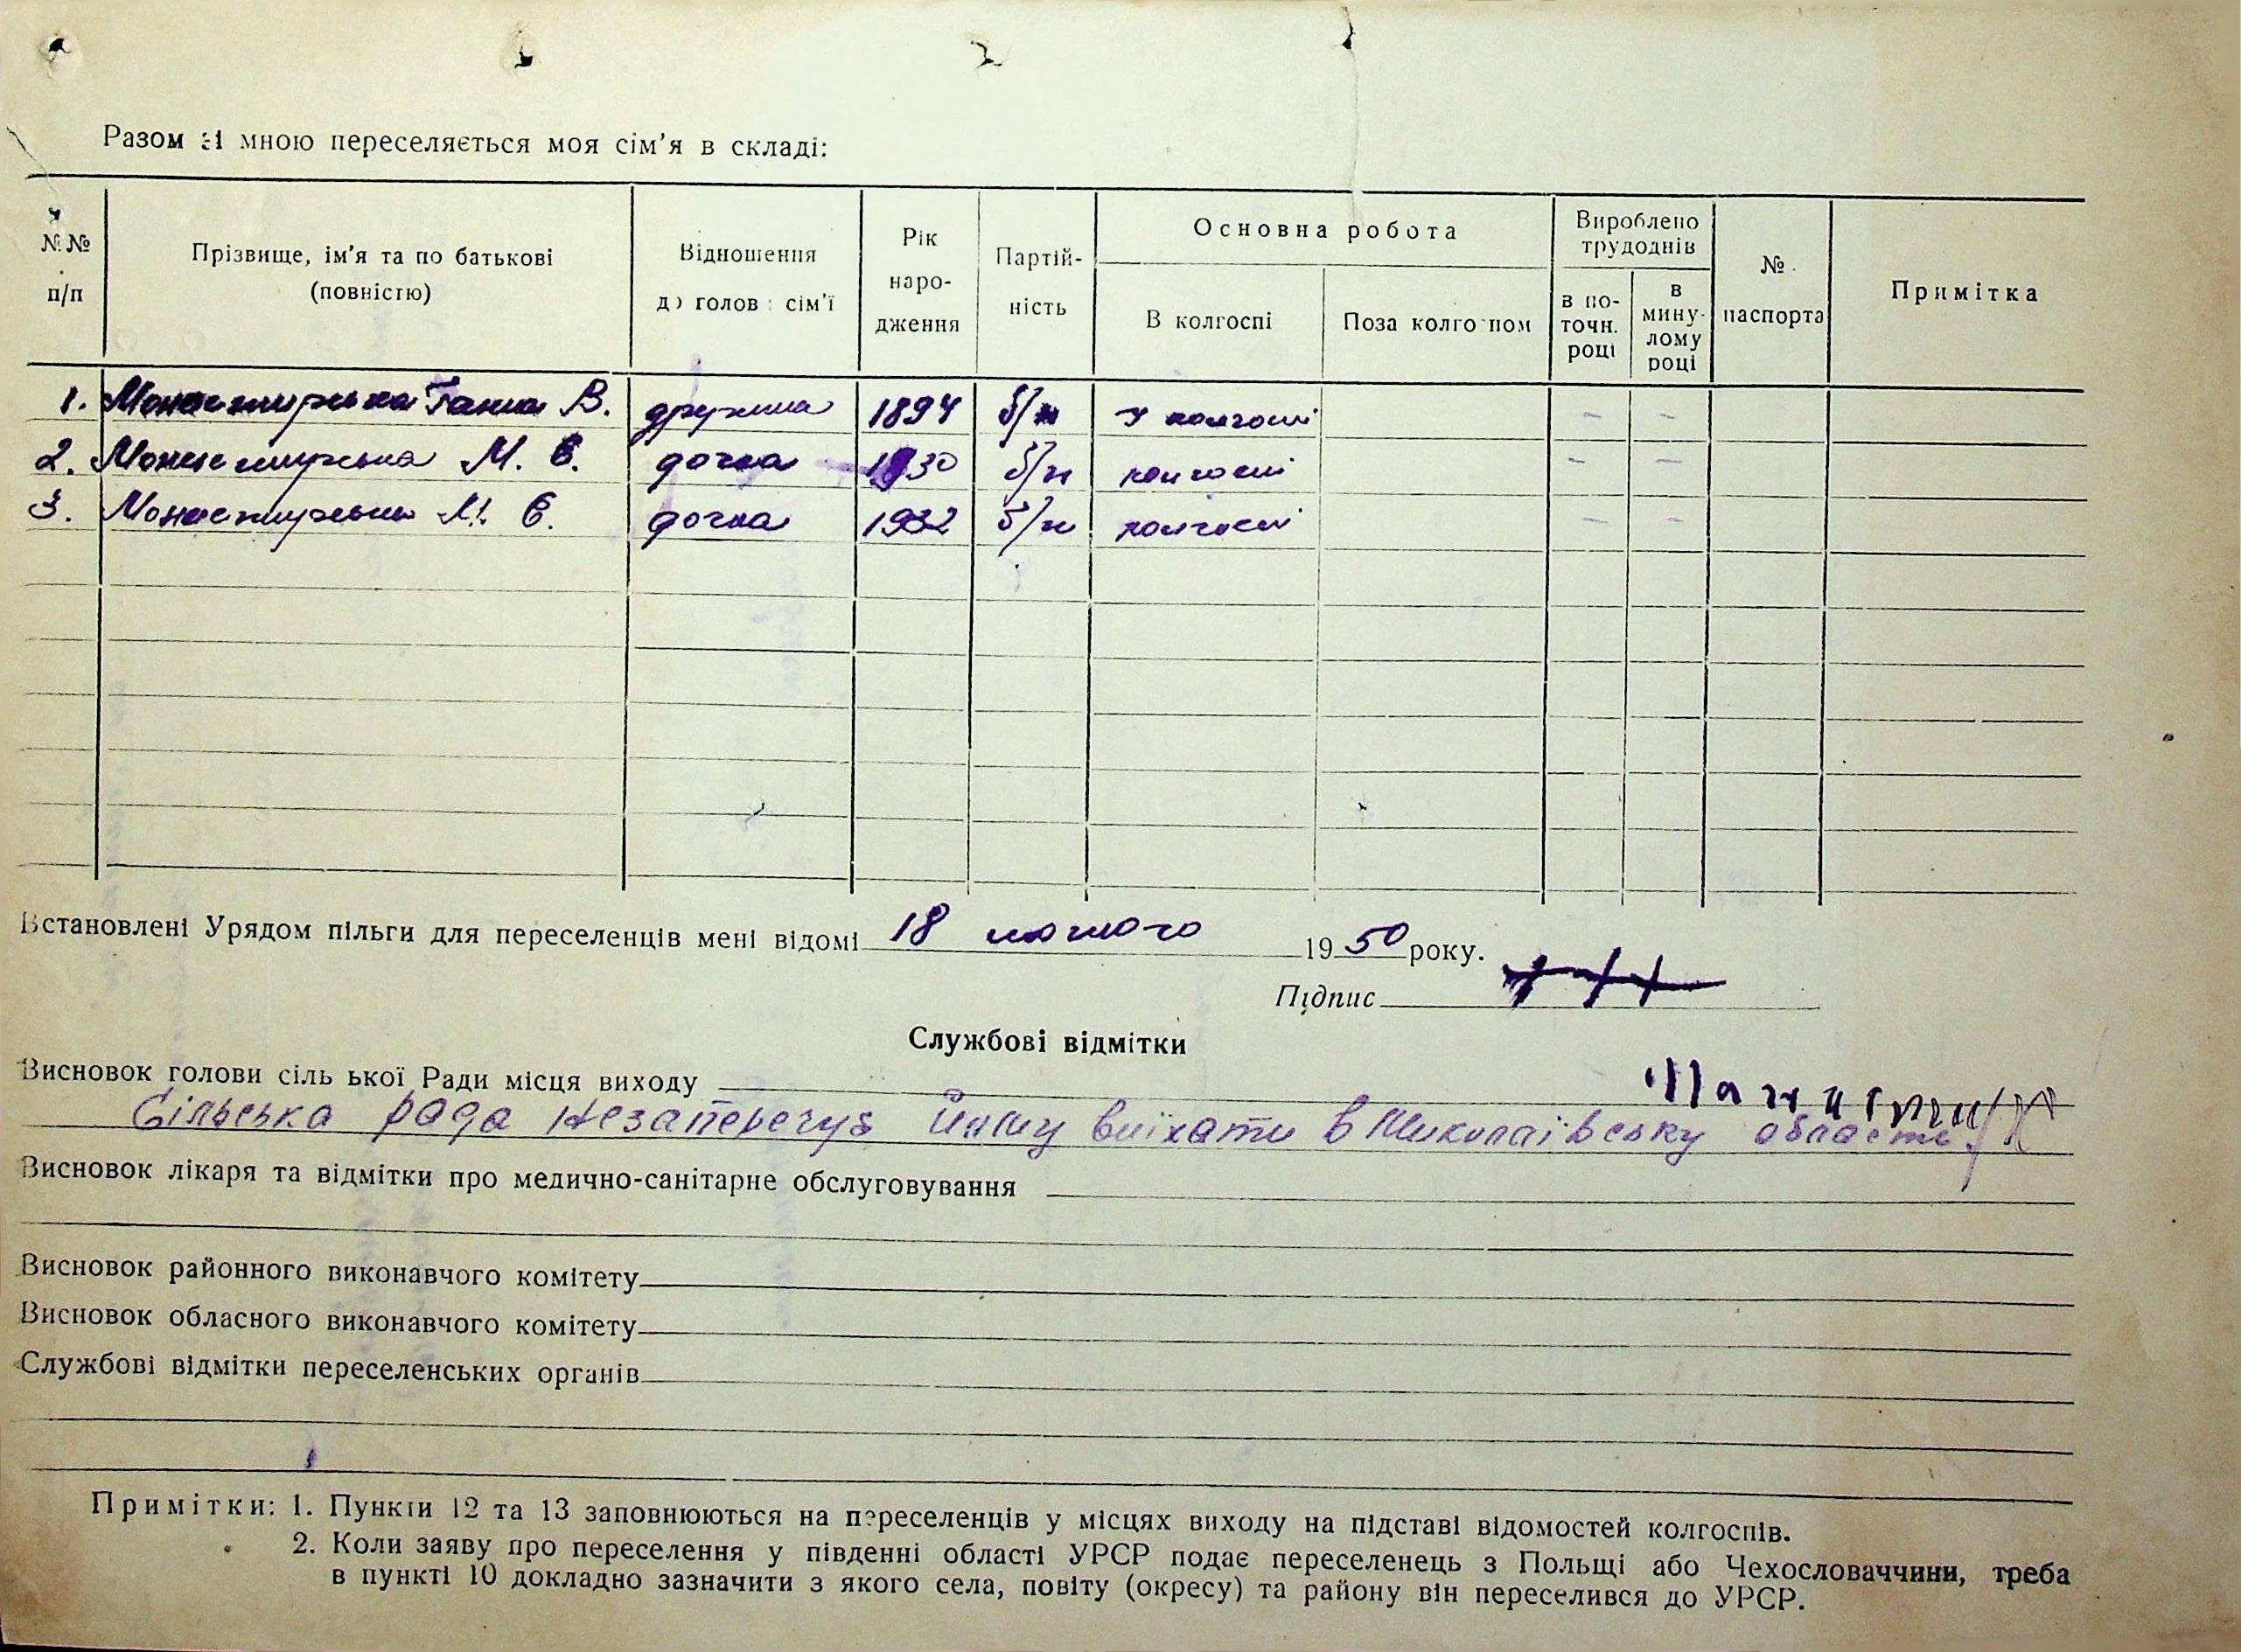 Разом зі мною переселяється моя сім'я в складі:
№№ п/п
Прізвище, ім'я та по батькові (повністю)
Відношення до голови сім'ї
Рік народження
Партійність
Основна робота
В колгоспі
Поза колгоспом
Вироблено трудоднів
в поточн. році
в минулому році
№ паспорта
Примітка
1. Монастирська Ганна В. дружина 1894 б/п у колгоспі – –
2. Монастирська М. Є. дочка 1930 б/п колгоспі – –
3. Монастирська М. Є. дочка 1932 б/п колгоспі – –
Встановлені Урядом пільги для переселенців мені відомі 18 лютого 1950 року.
Підпис
Службові відмітки
Висновок голови сільської Ради місця виходу
Сільська рада незаперечує йому виїхати в Миколаївську область
Висновок лікаря та відмітки про медично-санітарне обслуговування
Висновок районного виконавчого комітету
Висновок обласного виконавчого комітету
Службові відмітки переселенських органів
Примітки: 1. Пункти 12 та 13 заповнюються на переселенців у місцях виходу на підставі відомостей колгоспів.
2. Коли заяву про переселення у південні області УРСР подає переселенець з Польщі або Чехословаччини, треба
в пункті 10 докладно зазначити з якого села, повіту (окресу) та району він переселився до УРСР.